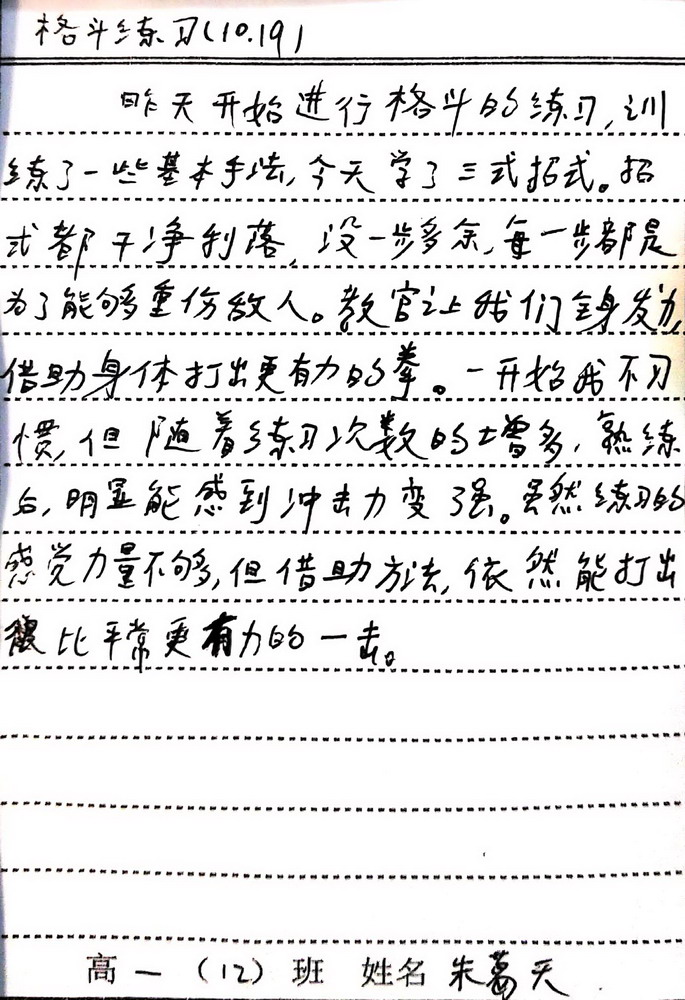 格斗练习(10.19)
昨天开始进行格斗的练习,训
练了一些基本手法,今天学了三式招式。招
式都干净利落,没一步多余,每一步都是
为了能够重伤敌人。教官让我们全身发力,
借助身体打出更有力的拳。一开始我不习
惯,但随着练习次数的增多,熟练
后,明显能感到冲击力变强。虽然练习的
感觉力量不够,但借助方法,依然能打出
比平常更有力的一击。
高一(12)班 姓名 朱葛天